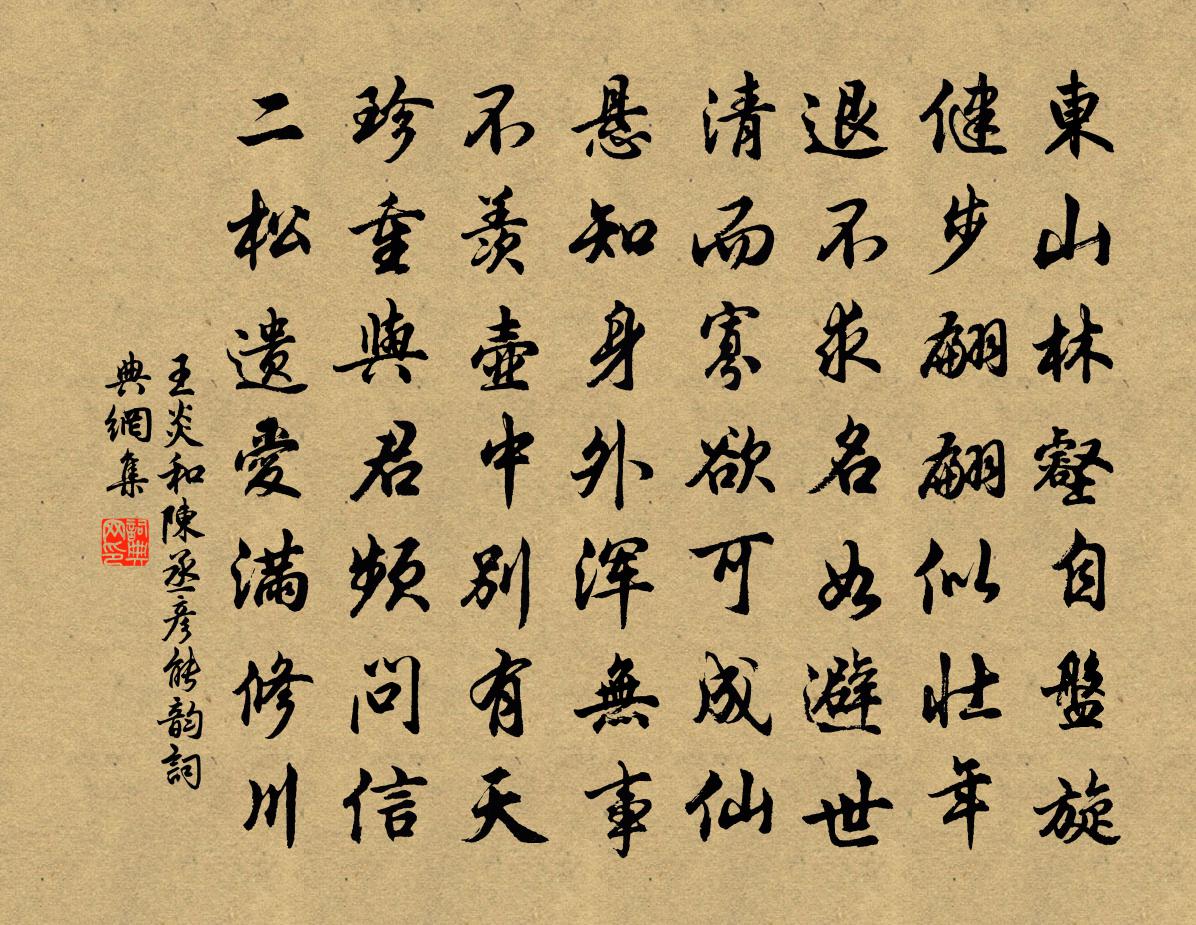 東山林壑自盤旋
健步翩翩似壯年
退不求名如避世
清而寡欲可成仙
悬知身外浑無事
不羨壺中別有天
珍重與君频問信
二松遗愛滿修川
王炎和陳丞彦能韵詞
典網集
詞典網印